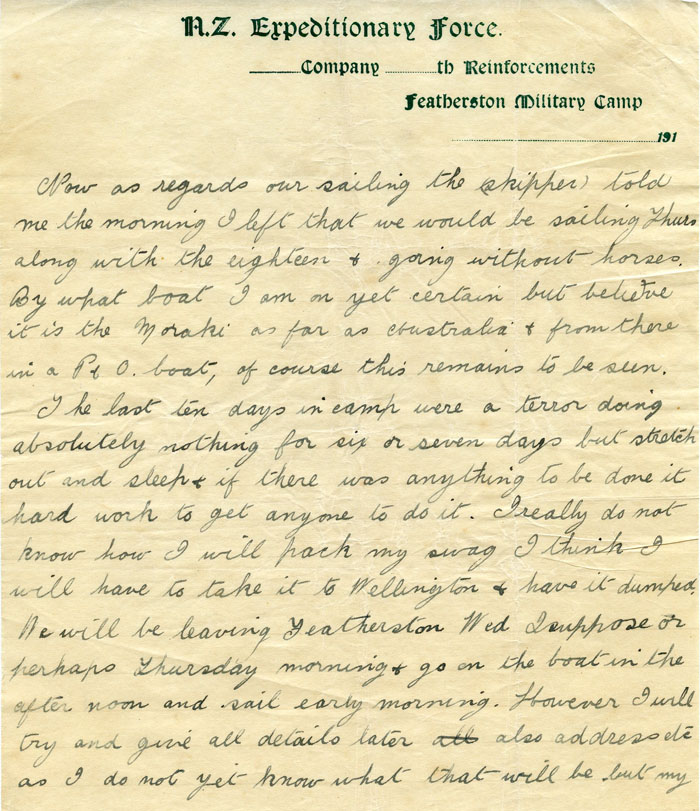 N.Z. Expeditionary Force.
Company th Reinforcements
Featherston Military Camp
191
Now as regards our sailing the (skipper) told
me the morning I left that we would be sailing Thurs
along with the eighteen & going without horses.
By what boat I am on yet certain but believe
it is the Moraki as far as Australia & from there
in a P & O. boat, of course this remains to be seen.
The last ten days in camp were a terror doing
absolutely nothing for six or seven days but stretch
out and sleep & if there was anything to be done it
hard work to get anyone to do it. I really do not
know how I will pack my swag I think I
will have to take it to Wellington & have it dumped.
We will be leaving Featherston Wed I suppose or
perhaps Thursday morning & go on the boat in the
after noon and sail early morning. However I will
try and give all details later all also address etc
as I do not yet know what that will be but my